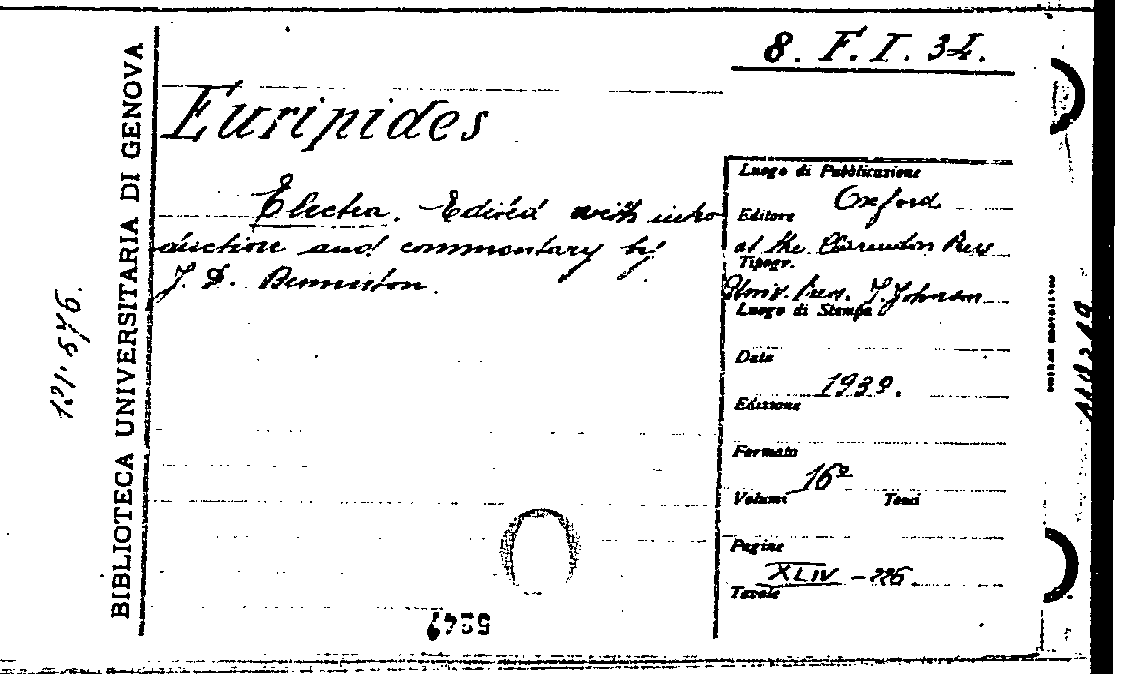 8. F. I. 34.
Euripides
Electra. Edited with intro
duction and commentary by
J. D. Denniston.
Luogo di Pubblicazione
Oxford
Editore
at the Clarendon Press
Tipogr.
Univ. Press. J. Johnson
Luogo di Stampa
Data
1939.
Edizione
Formato
16º
Volumi Tomi
Pagine
XLIV - 226.
Tavole
BIBLIOTECA UNIVERSITARIA DI GENOVA
121.576.